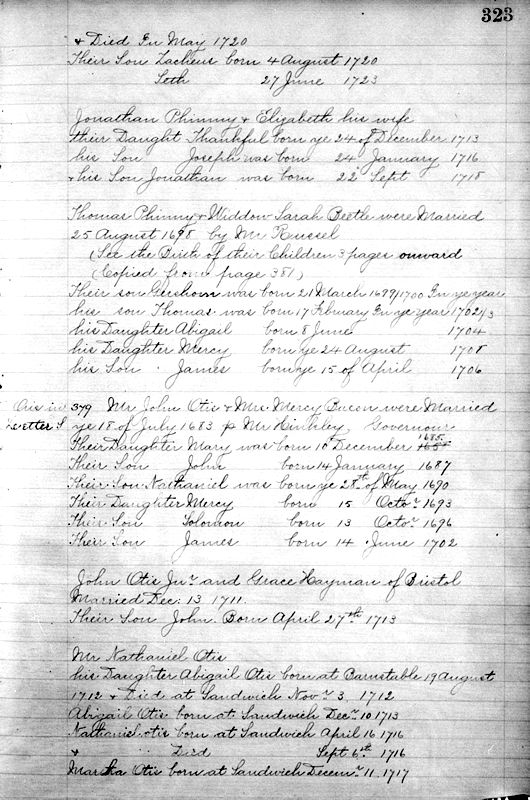 323
& Died In May 1720
Their Son Zacheus born 4 August 1720
Seth 27 June 1723
Jonathan Phinny & Elizabeth his wife
their Daught Thankful born ye 24 of December 1713
his Son Joseph was born 24 January 1716
& his Son Jonathan was born 22 Sept 1718
Thomas Phinny & Widdow Sarah Beetle were Married
25 August 1698 by Mr Russel
(See the Birth of their Children 3 pages onward
(Copied from page 381)
Their son Gershom was born 21 March 1699/1700 In ye year
his son Thomas was born 17 Febuary In ye year 1702/3
his Daughter Abigail born 8 June 1704
his Daughter Mercy born ye 24 August 1708
his Son James born ye 15 of April 1706
379 Mr John Otis & Mrs Mercy Bacon were Married
Letter S ye 18 of July 1683 Mr Hinkley, Governour
Their Daughter Mary was born 10 December 1685
Their Son John born 14 January 1687
Their Son Nathaniel was born ye 28th of May 1690
Their Daughter Mercy born 15 Octor 1693
Their Son Solomon born 13 Octor 1696
Their Son James born 14 June 1702
John Otis Junr and Grace Hayman of Bristol
Married Dec. 13 1711.
Their Son John Born April 27th 1713
Mr Nathaniel Otis
his Daughter Abigail Otis born at Barnstable 19 August
1712 & Died at Sandwich Novr 3 1712
Abigail Otis born at Sandwich Decr 10 1713
Nathaniel Otis born at Sandwich April 16 1716
& " " Died Sept 6th 1716
Martha Otis born at Sandwich Decemr 11 1717